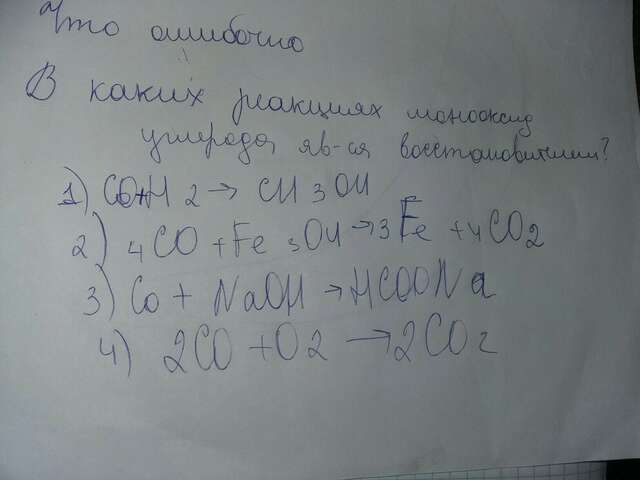 Что ошибочно
В каких реакциях монооксид
углерода яв-ся восстановителем?
1) CO+H 2 → CH 3 OH
2) 4CO + Fe 3O4 → 3Fe + 4CO2
3) Co + NaOH → HCOONa
4) 2CO + O2 → 2CO2